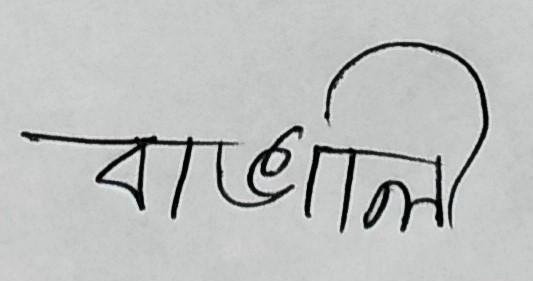 বাঙালী